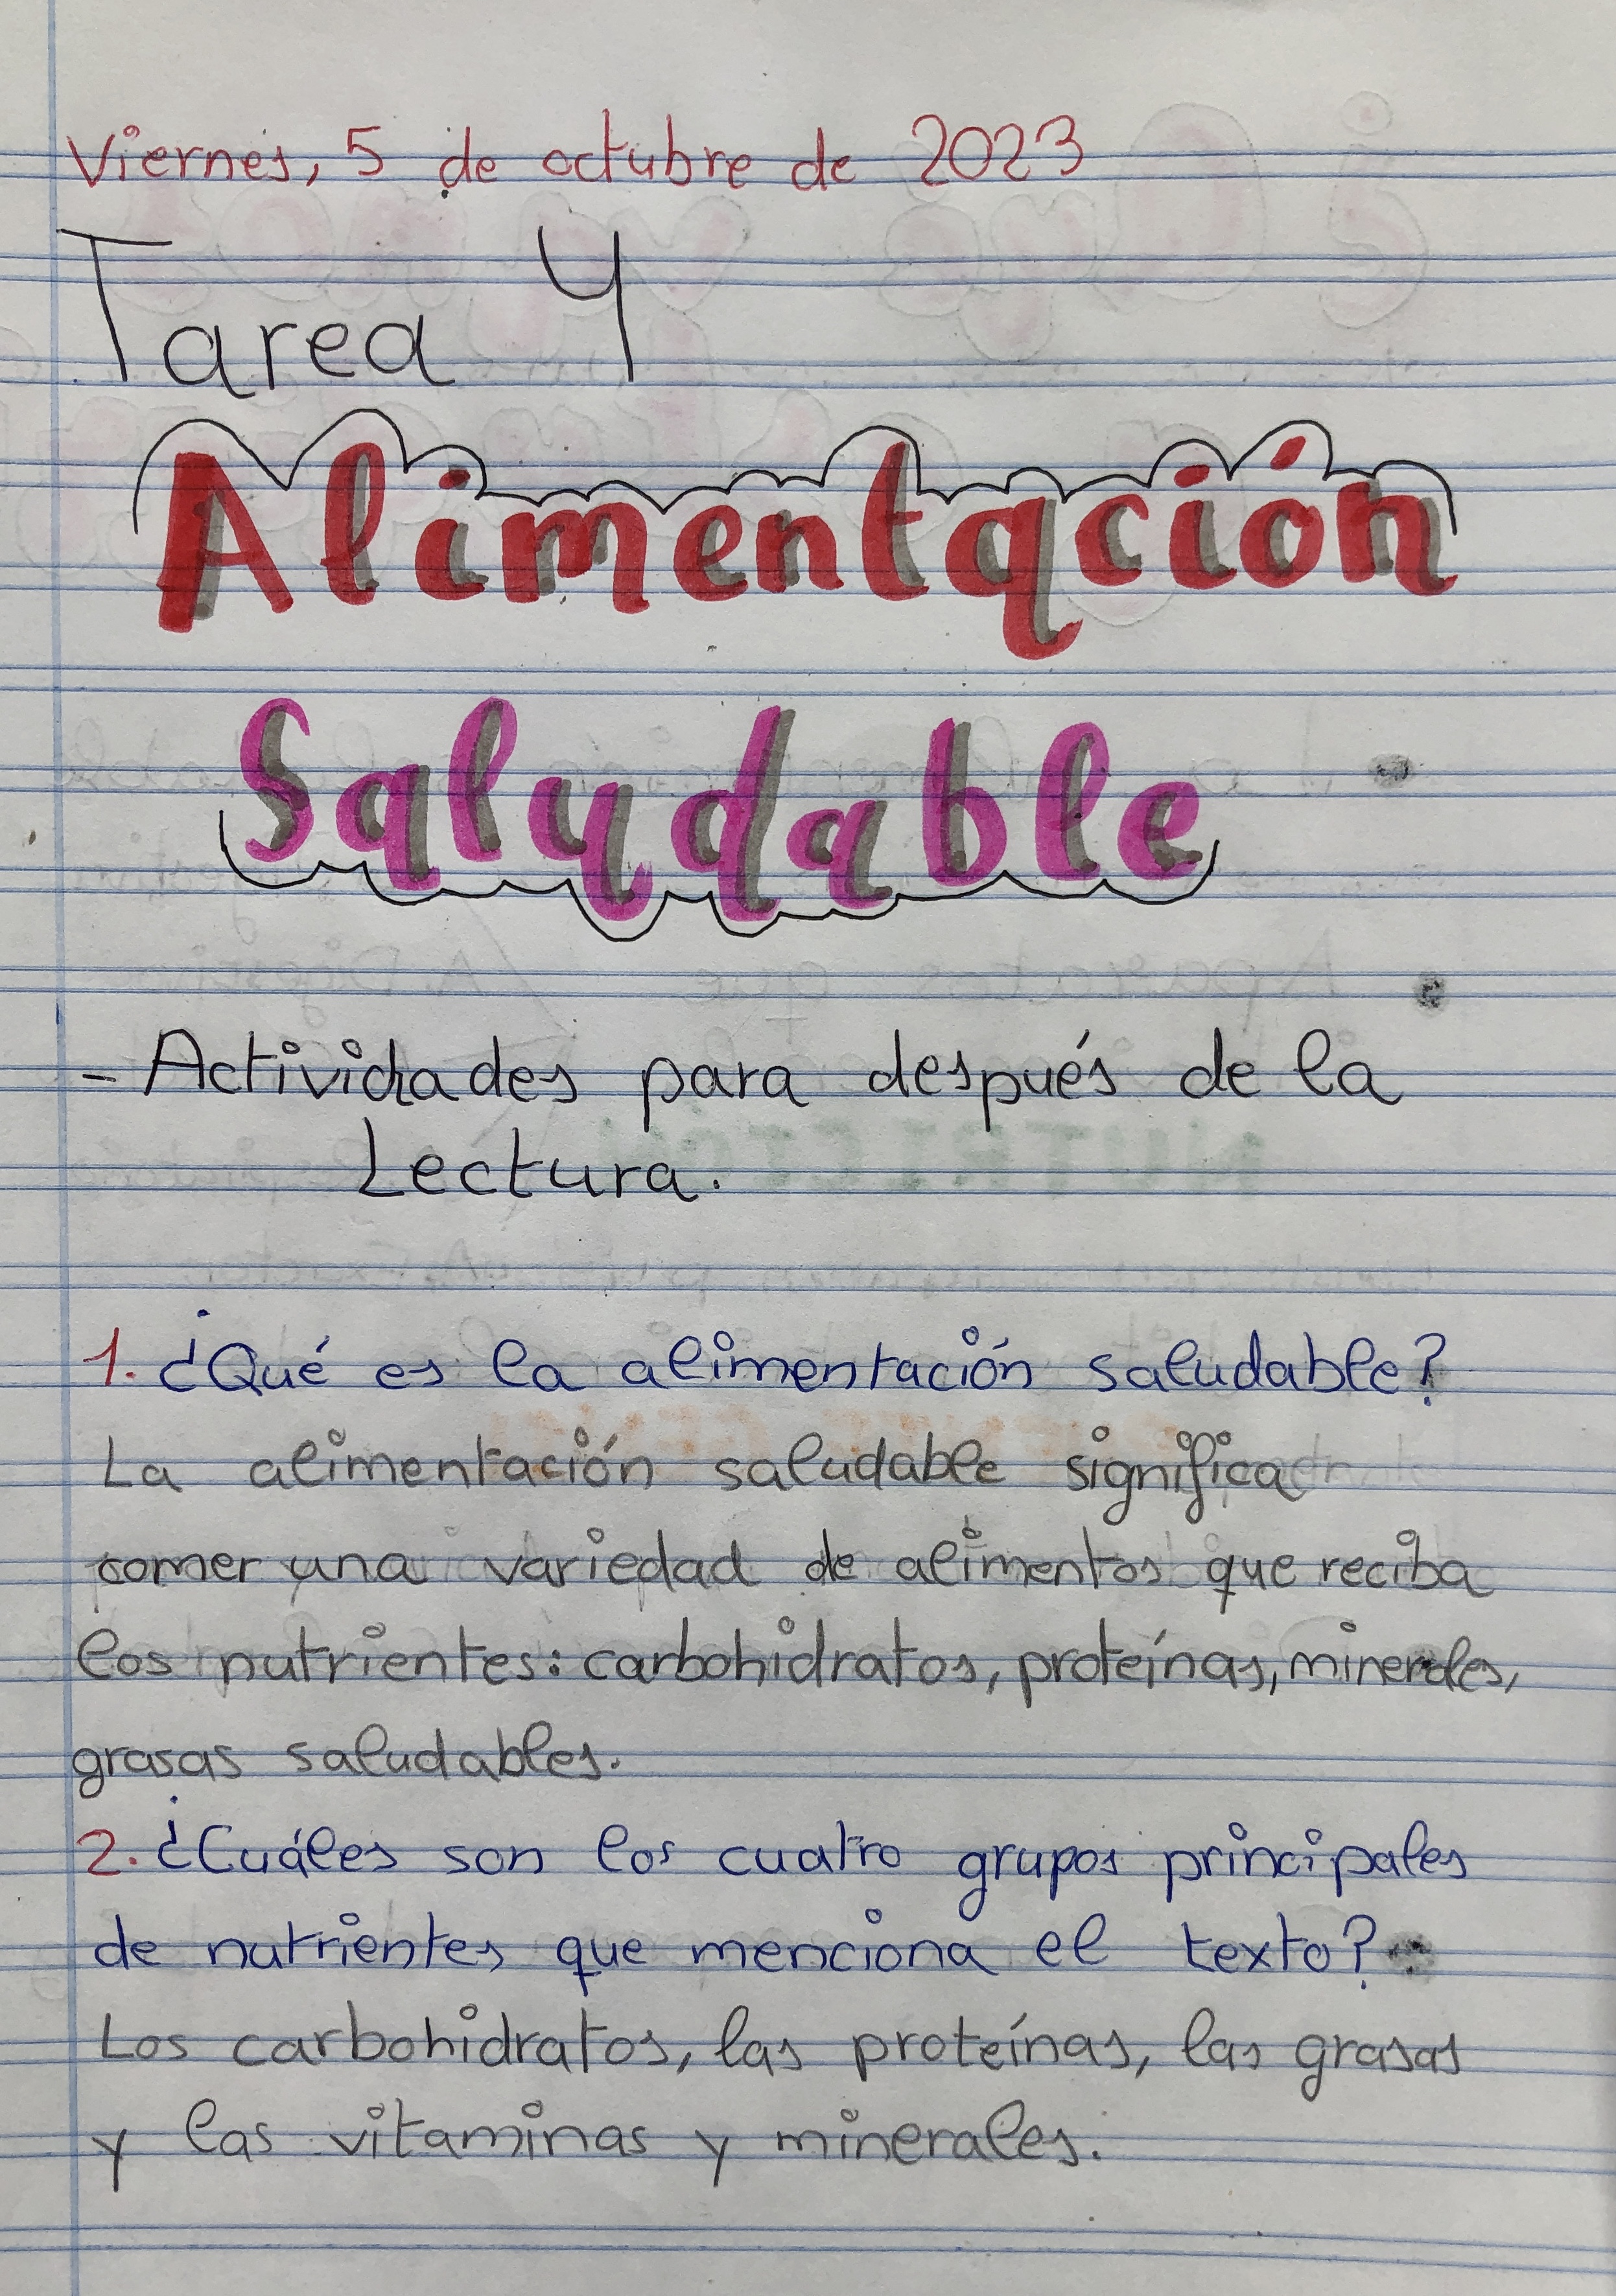 Viernes, 5 de octubre de 2023
Tarea 4
Alimentación
Saludable
- Actividades para después de la
Lectura.
1. ¿Qué es la alimentación saludable?
La alimentación saludable significa
comer una variedad de alimentos que reciba
los nutrientes: carbohidratos, proteínas, minerales,
grasas saludables.
2. ¿Cuáles son los cuatro grupos principales
de nutrientes que menciona el texto?
Los carbohidratos, las proteínas, las grasas
y las vitaminas y minerales.